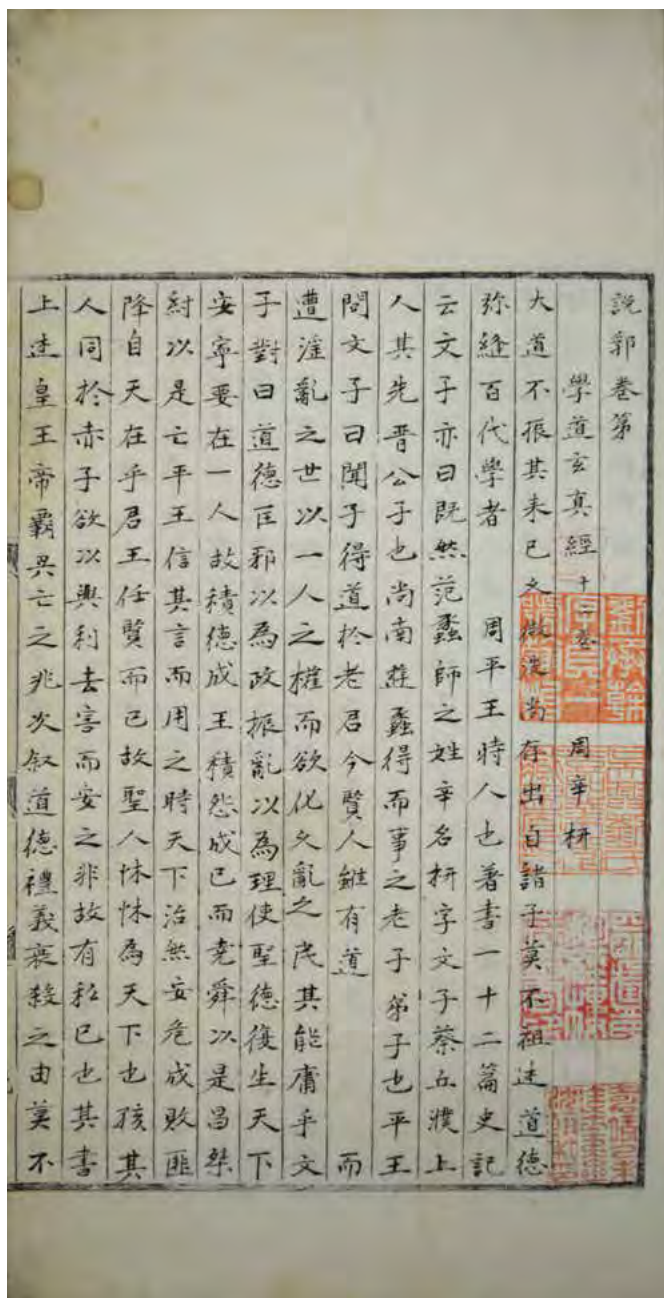 說郛卷第
學道玄真經十二卷 周辛枅
大道不振其来已久微波尚存出自諸子莫不祖述道德
弥縫百代學者 周平王時人也著書一十二篇史記
云文子亦曰既然范蠡師之姓辛名枅字文子蔡丘濮上
人其先晋公子也尚南遊蠡得而事之老子弟子也平王
問文子曰聞子得道於老君今賢人雖有道 而
遭淫亂之世以一人之權而欲化久亂之民其能庸乎文
子對曰道德匡邪以為政振亂以為理使聖德復生天下
安寧要在一人故積德成王積怨成已而堯舜以是昌桀
紂以是亡平王信其言而用之時天下治然安危成敗匪
降自天在乎君王任賢而已故聖人怵怵為天下也孩其
人同於赤子欲以興利去害而安之非故有私已也其書
上述皇王帝霸兴亡之兆次叙道德禮義衰殺之由莫不